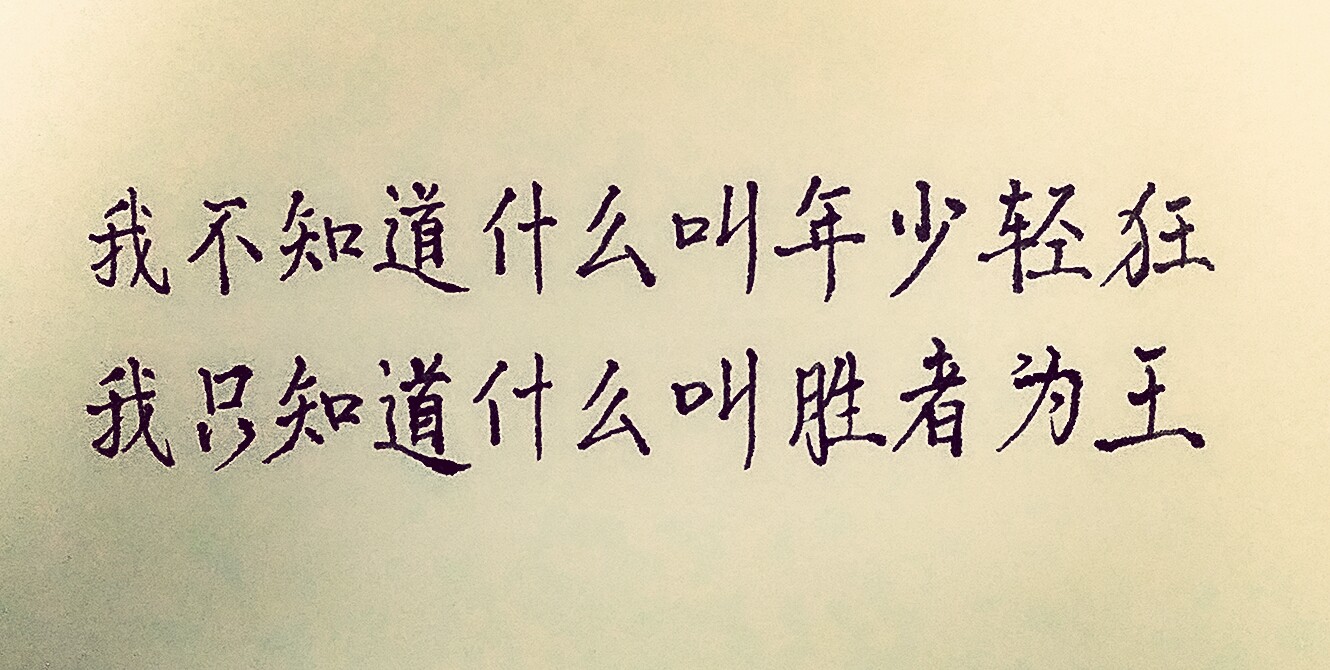 我不知道什么叫年少轻狂
我只知道什么叫胜者为王